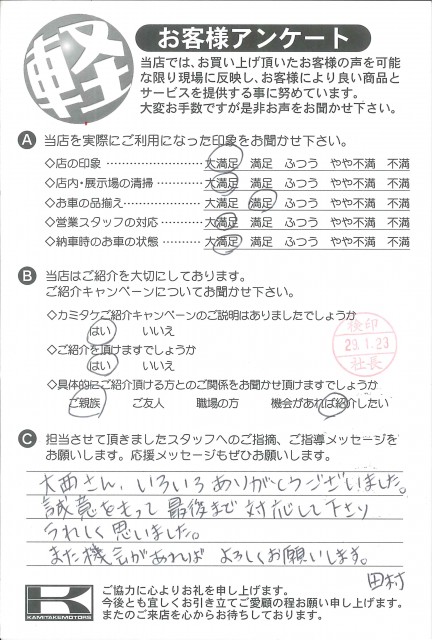 軽
お客様アンケート
当店では、お買い上げ頂いたお客様の声を可能
な限り現場に反映し、お客様により良い商品と
サービスを提供する事に努めています。
大変お手数ですが是非お声をお聞かせ下さい。
A 当店を実際にご利用になった印象をお聞かせ下さい。
◇店の印象 ………………… 大満足 満足 ふつう やや不満 不満
◇店内・展示場の清掃 ………… 大満足 満足 ふつう やや不満 不満
◇お車の品揃え ……………… 大満足 満足 ふつう やや不満 不満
◇営業スタッフの対応 ………… 大満足 満足 ふつう やや不満 不満
◇納車時のお車の状態 ………… 大満足 満足 ふつう やや不満 不満
B 当店はご紹介を大切にしております。
ご紹介キャンペーンについてお聞かせ下さい。
◇カミタケご紹介キャンペーンのご説明はありましたでしょうか
はい いいえ
◇ご紹介を頂けますでしょうか
はい いいえ
◇具体的にご紹介頂ける方とのご関係をお聞かせ頂けますでしょうか
ご親族 ご友人 職場の方 機会があれば紹介したい
検印
29.1.23
社長
C 担当させて頂きましたスタッフへのご指摘、ご指導メッセージを
お願いします。応援メッセージもぜひお願いします。
大西さん、いろいろありがとうございました。
誠意をもって最後まで対応して下さり
うれしく思いました。
また機会があれば よろしくお願いします。
田村
K
KAMITAKEMOTORS
ご協力に心よりお礼を申し上げます。
今後とも宜しくお引き立てご愛顧の程お願い申し上げます。
またのご来店を心からお待ちしております。